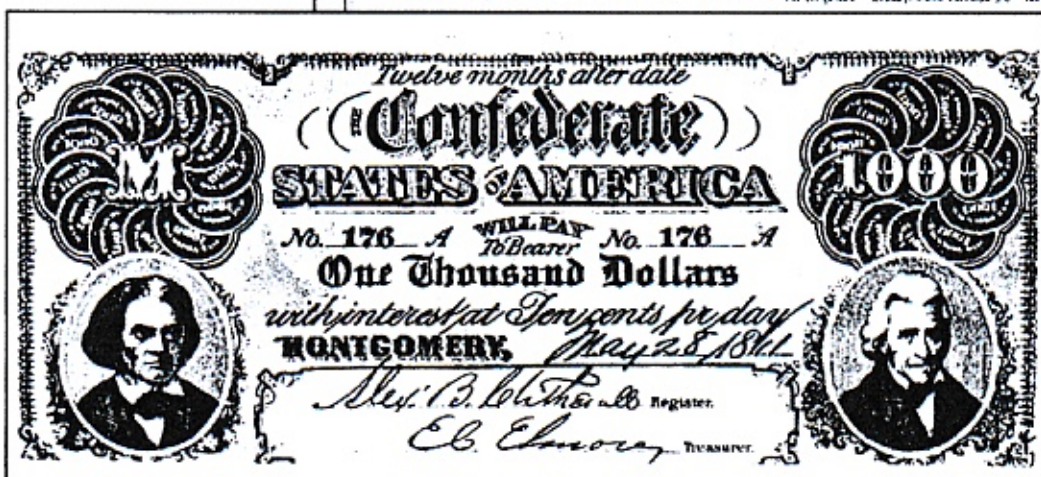 Twelve months after date
THE Confederate
STATES of AMERICA
M
1000
No. 176 A WILL PAY To Bearer No. 176 A
One Thousand Dollars
with interest at Ten cents pr day
MONTGOMERY, May 28, 1861
Alex. B. Clitherall Register.
E.C. Elmore, Treasurer.